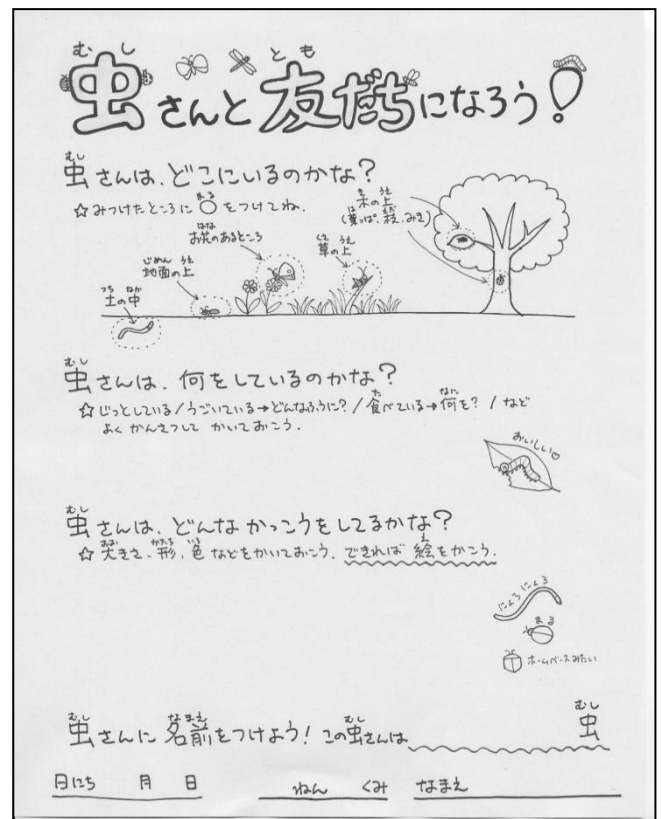 虫さんと友だちになろう!
虫さんは、どこにいるのかな?
☆みつけたところに○をつけてね.
木の上
(葉っぱ,枝,みき)
お花のあるところ
草の上
地面の上
土の中
虫さんは、何をしているのかな?
☆じっとしている/うごいている→どんなふうに?/食べている→何を?/など
よくかんさつして かいておこう.
おいしい♡
虫さんは、どんなかっこうをしてるかな?
☆大きさ、形、色などをかいておこう.できれば絵をかこう.
にょろにょろ
まる
ホームベースみたい
虫さんに名前をつけよう!この虫さんは 虫
日にち 月 日 ねん くみ なまえ